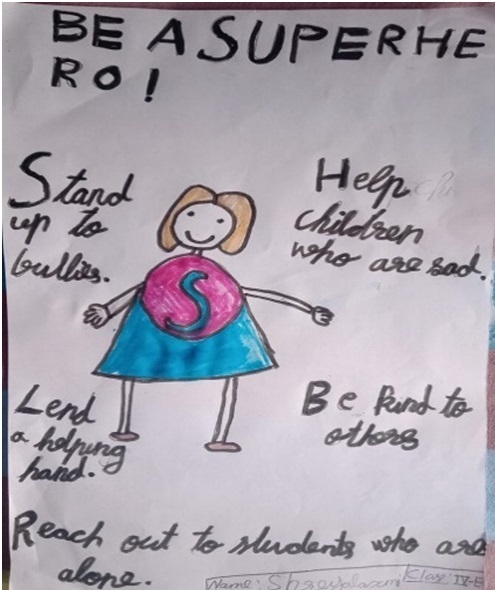 BE A SUPERHE
RO!
Stand
up to
bullies.
Help
children
who are sad.
S
Lend
a helping
hand.
Be kind to
others
Reach out to students who are
alone.
Name: Shreyalaxmi Class: IV-E